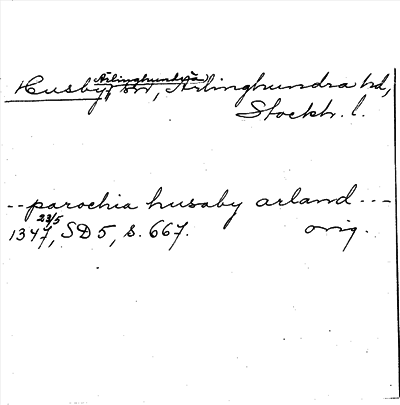 Ärlinghundra
Husby, sn, Ärlinghundra hd,
Stockh. l.
-- parochia husaby arland ---
23/5
1347, SD 5, s. 667. orig.